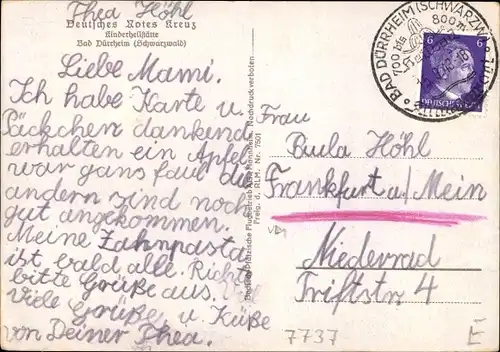 Thea Höhl
Deutsches Rotes Kreuz
Kinderheilstätte
Bad Dürrheim (Schwarzwald)
Liebe Mami.
Ich habe Karte u.
Päckchen dankend
erhalten ein Apfel
war ganz faul die
andern sind noch
gut angekommen.
Meine Zahnpasta
ist bald alle. Richte
bitte Grüße aus.
Viele Grüße u. Küße
von Deiner Thea.
Nachdruck verboten
Freig. d. RLM. Nr. 7501
BAD DÜRRHEIM (SCHWARZW.
700 bis 800 m
6 6
DEUTSCHES
Frau
Paula Höhl
Frankfurt a/Mein
Niederrad
Triftstr 4
7737
E